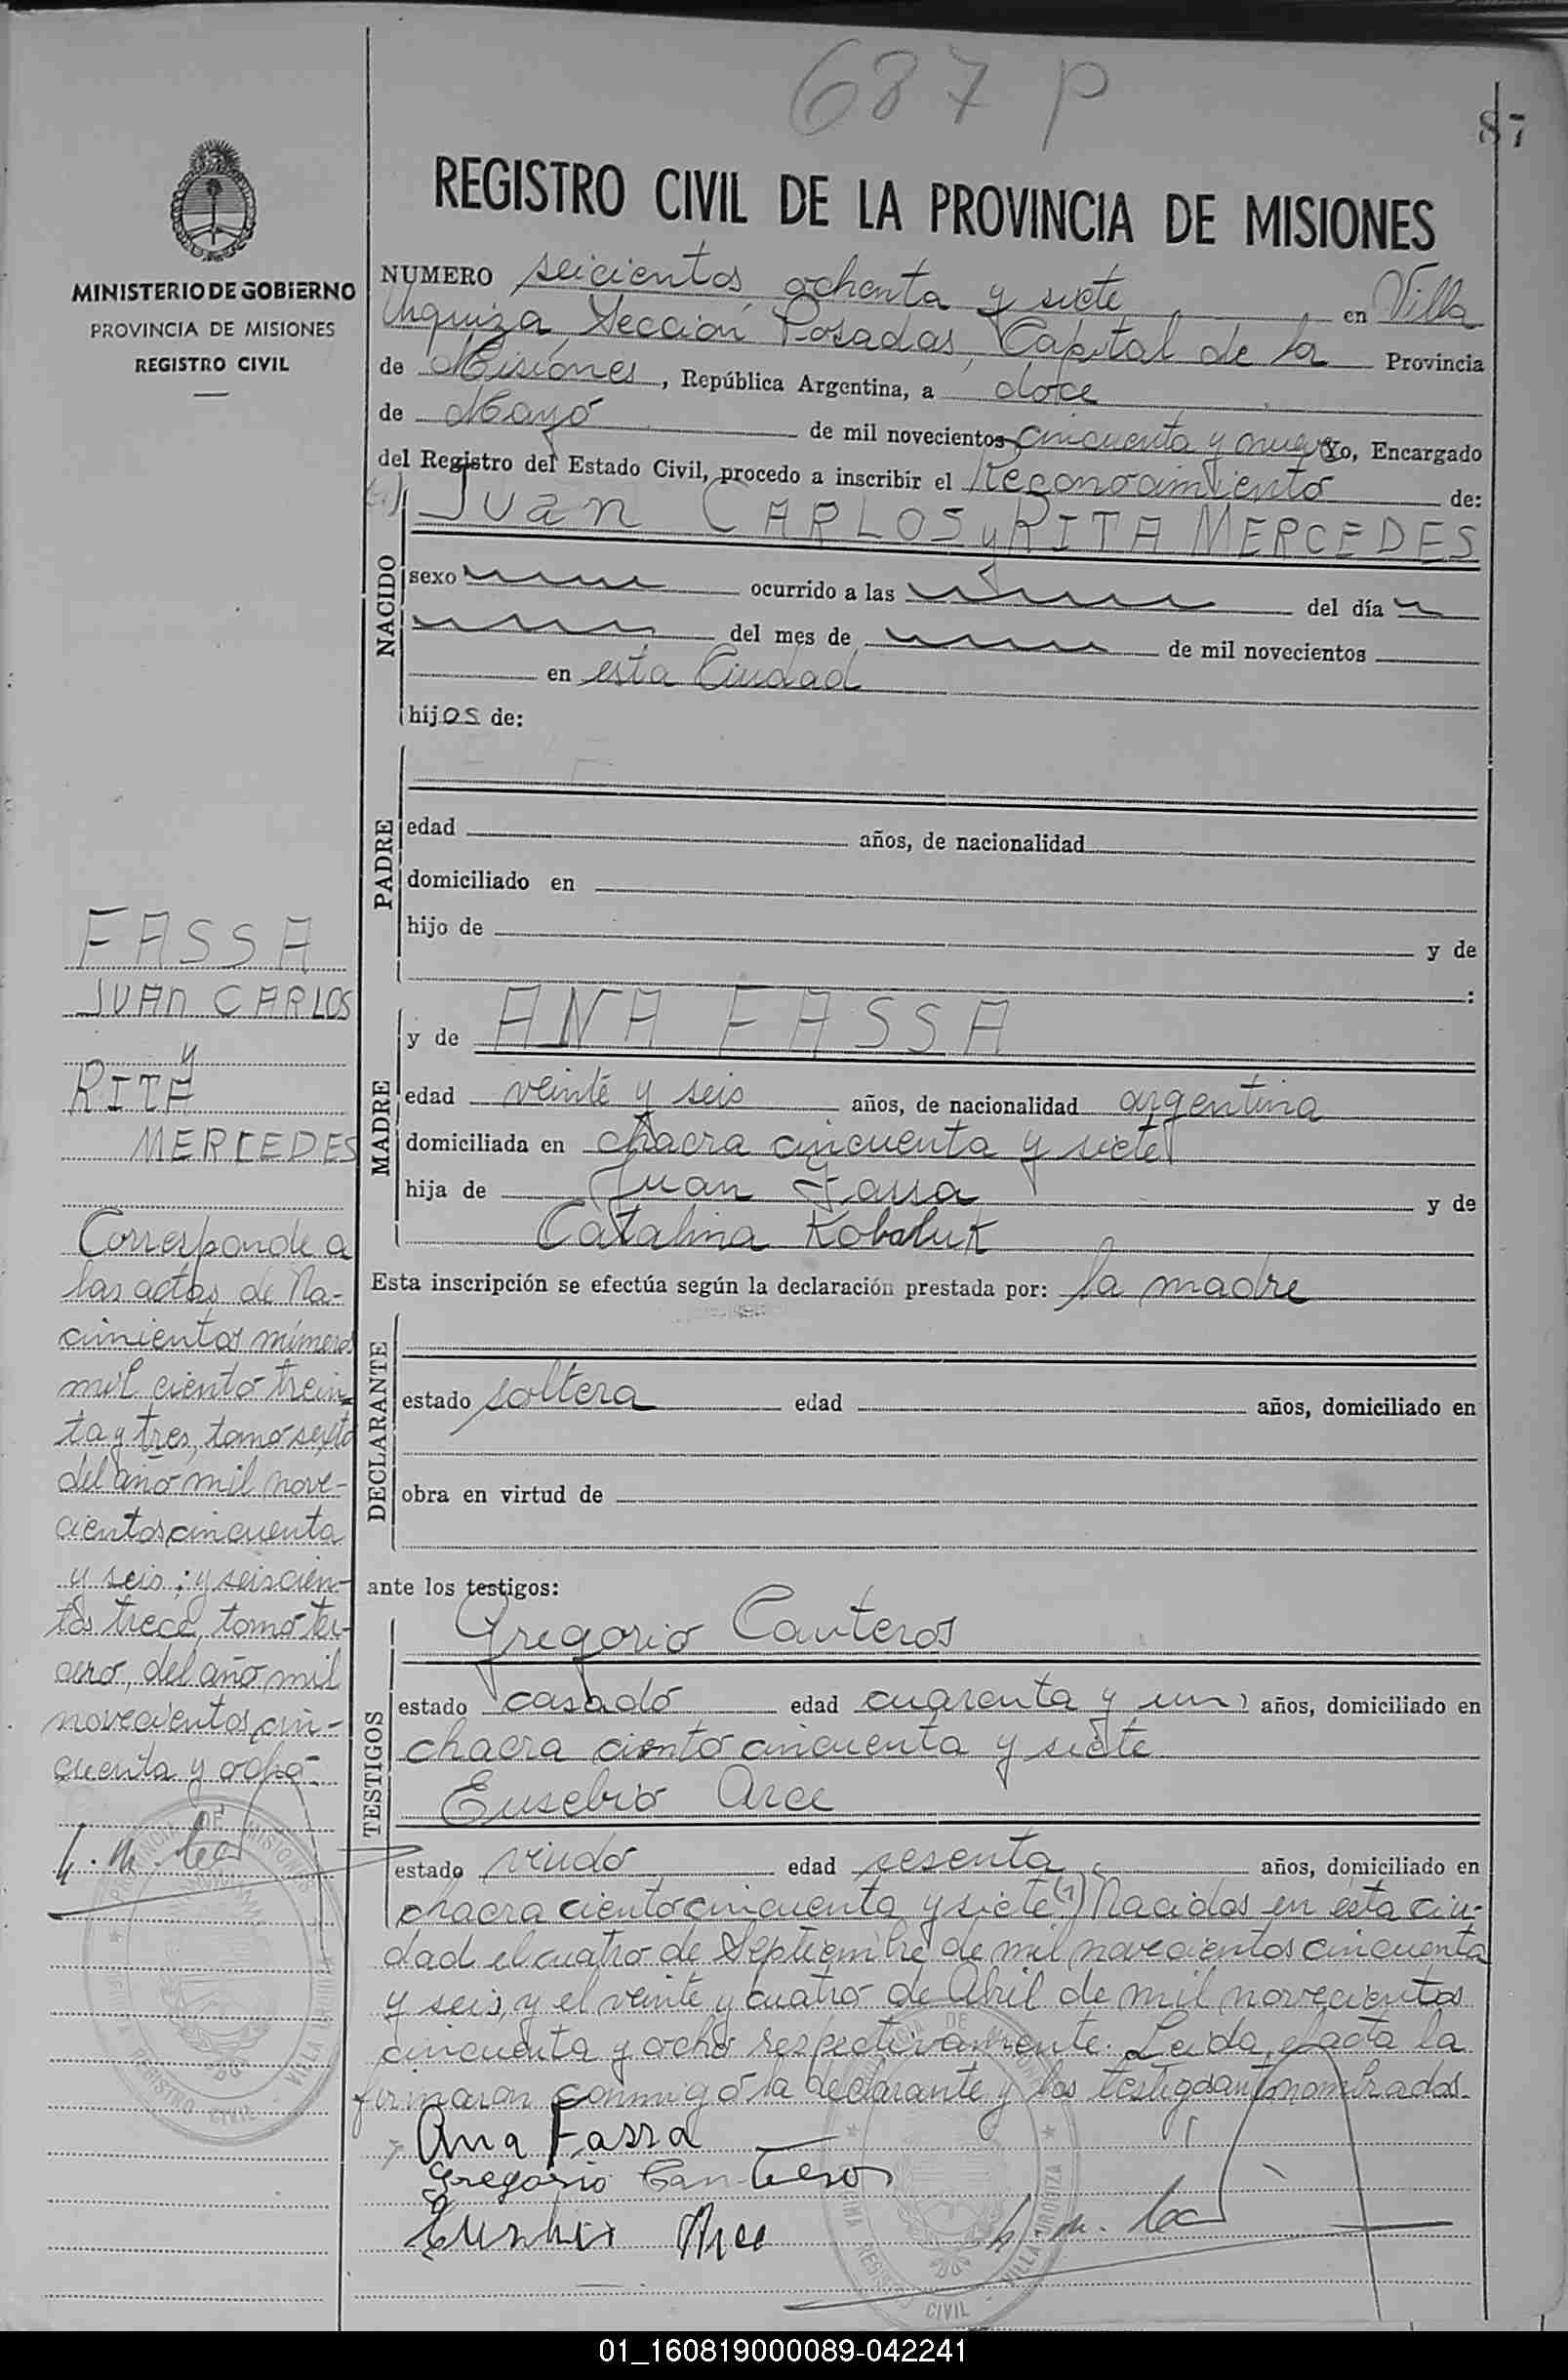 687 P
87
REGISTRO CIVIL DE LA PROVINCIA DE MISIONES
MINISTERIO DE GOBIERNO
PROVINCIA DE MISIONES
REGISTRO CIVIL
NUMERO seicientos ochenta y siete en Villa
Urquiza, Sección Posadas, Capital de la Provincia
de Misiones, República Argentina, a doce
de Mayo de mil novecientos cincuenta y nueve Yo, Encargado
del Registro del Estado Civil, procedo a inscribir el Reconocimiento de:
(1) Juan CARLOS y RITA MERCEDES
NACIDO
sexo ocurrido a las del día
del mes de de mil novecientos
en esta Ciudad
hijos de:
PADRE
edad años, de nacionalidad
domiciliado en
hijo de y de
:
MADRE
y de ANA FASSA
edad veinte y seis años, de nacionalidad argentina
domiciliada en chacra cincuenta y siete
hija de Juan Fassa y de
Catalina Kobaluk
Esta inscripción se efectúa según la declaración prestada por: la madre
DECLARANTE
estado soltera edad años, domiciliado en
obra en virtud de
ante los testigos:
TESTIGOS
Gregorio Canteros
estado casado edad cuarenta y un años, domiciliado en
chacra ciento cincuenta y siete
Eusebio Arce
estado viudo edad sesenta años, domiciliado en
chacra ciento cincuenta y siete (1) Nacidos en esta ciu-
dad el cuatro de Septiembre de mil novecientos cincuenta
y seis, y el veinte y cuatro de Abril de mil novecientos
cincuenta y ocho respectivamente. Leida el acta la
firmaron conmigo la declarante y los testigos antenombrados.
Ana Fassa
Gregorio Canteros
Eusebio Arce
FASSA
JUAN CARLOS
y
RITA
MERCEDES
Corresponde a
las actas de Na-
cimientos números
mil ciento trein-
ta y tres, tomo sexto
del año mil nove-
cientos cincuenta
y seis; y seiscien-
tos trece, tomo ter-
cero, del año mil
novecientos cin-
cuenta y ocho.
PROVINCIA DE MISIONES
REGISTRO CIVIL
VILLA URQUIZA
01_160819000089-042241